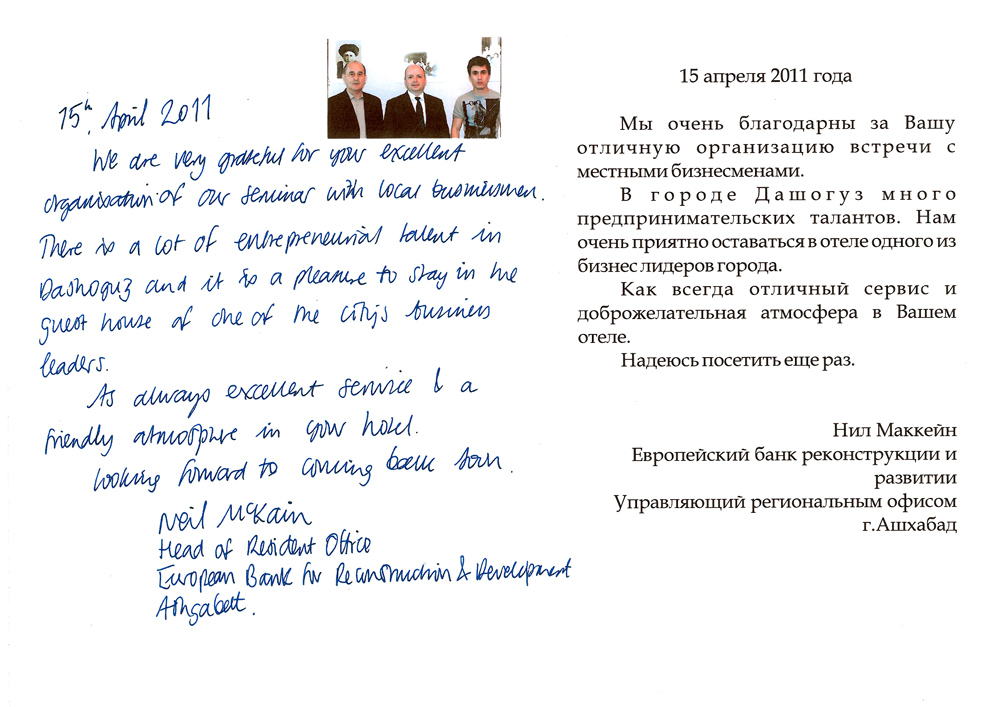 15th April 2011
We are very grateful for your excellent
organisation of our seminar with local businessmen.
There is a lot of entrepreneurial talent in
Dashoguz and it is a pleasure to stay in the
guest house of one of the city's business
leaders.
As always excellent service & a
friendly atmosphere in your hotel.
Looking forward to coming back soon.
Neil McKain
Head of Resident Office
European Bank for Reconstruction & Development
Ashgabat.
15 апреля 2011 года
Мы очень благодарны за Вашу
отличную организацию встречи с
местными бизнесменами.
В городе Дашогуз много
предпринимательских талантов. Нам
очень приятно оставаться в отеле одного из
бизнес лидеров города.
Как всегда отличный сервис и
доброжелательная атмосфера в Вашем
отеле.
Надеюсь посетить еще раз.
Нил Маккейн
Европейский банк реконструкции и
развитии
Управляющий региональным офисом
г.Ашхабад